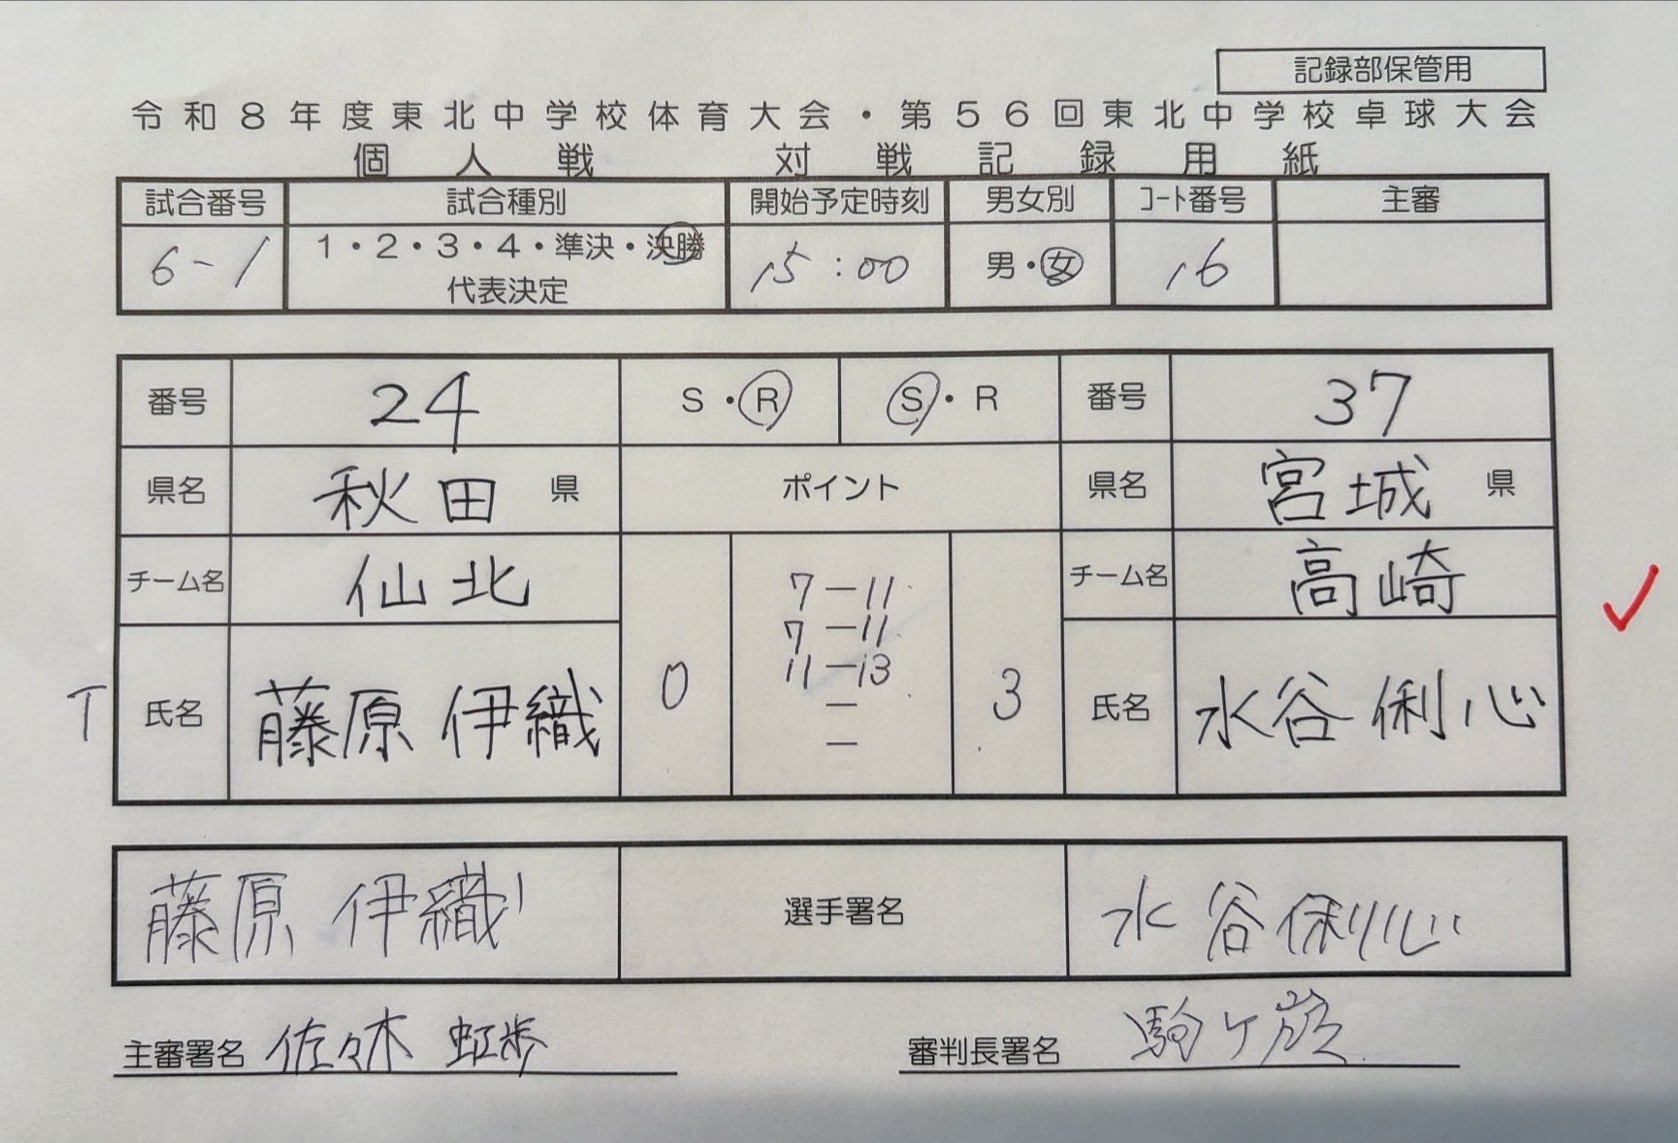 記録部保管用
令和8年度東北中学校体育大会・第56回東北中学校卓球大会
個人戦 対戦記録用紙
試合番号 試合種別 開始予定時刻 男女別 コート番号 主審
6-1 1・2・3・4・準決・決勝 15:00 男・女 16
代表決定
番号 24 S・R S・R 番号 37
県名 秋田 県 ポイント 県名 宮城 県
チーム名 仙北 チーム名 高崎
7-11
7-11
11-13
T 氏名 藤原 伊織 0 3 氏名 水谷 俐心
-
-
藤原 伊織 選手署名 水谷 俐心
主審署名 佐々木 虹歩 審判長署名 駒ケ嶺